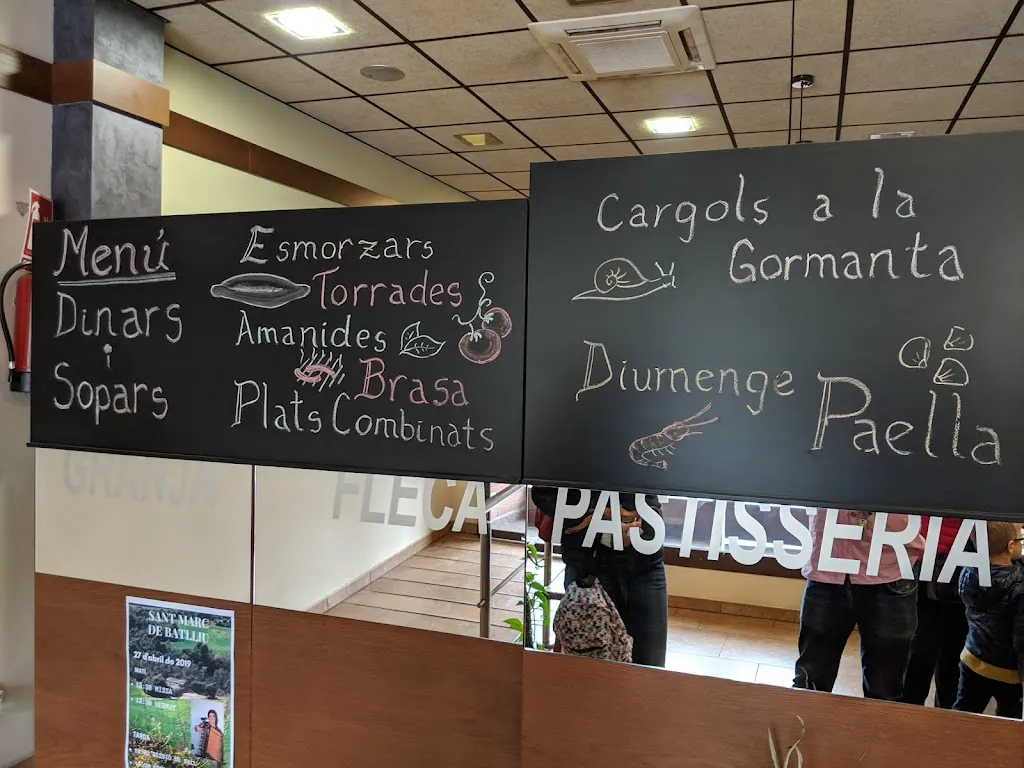 Menú
Dinars
i
Sopars
Esmorzars
Torrades
Amanides
Brasa
Plats Combinats
Cargols a la
Gormanta
Diumenge
Paella
GRANJA
FLECA
PASTISSERIA
SANT MARC
DE BATLLIU
27 d'abril de 2019